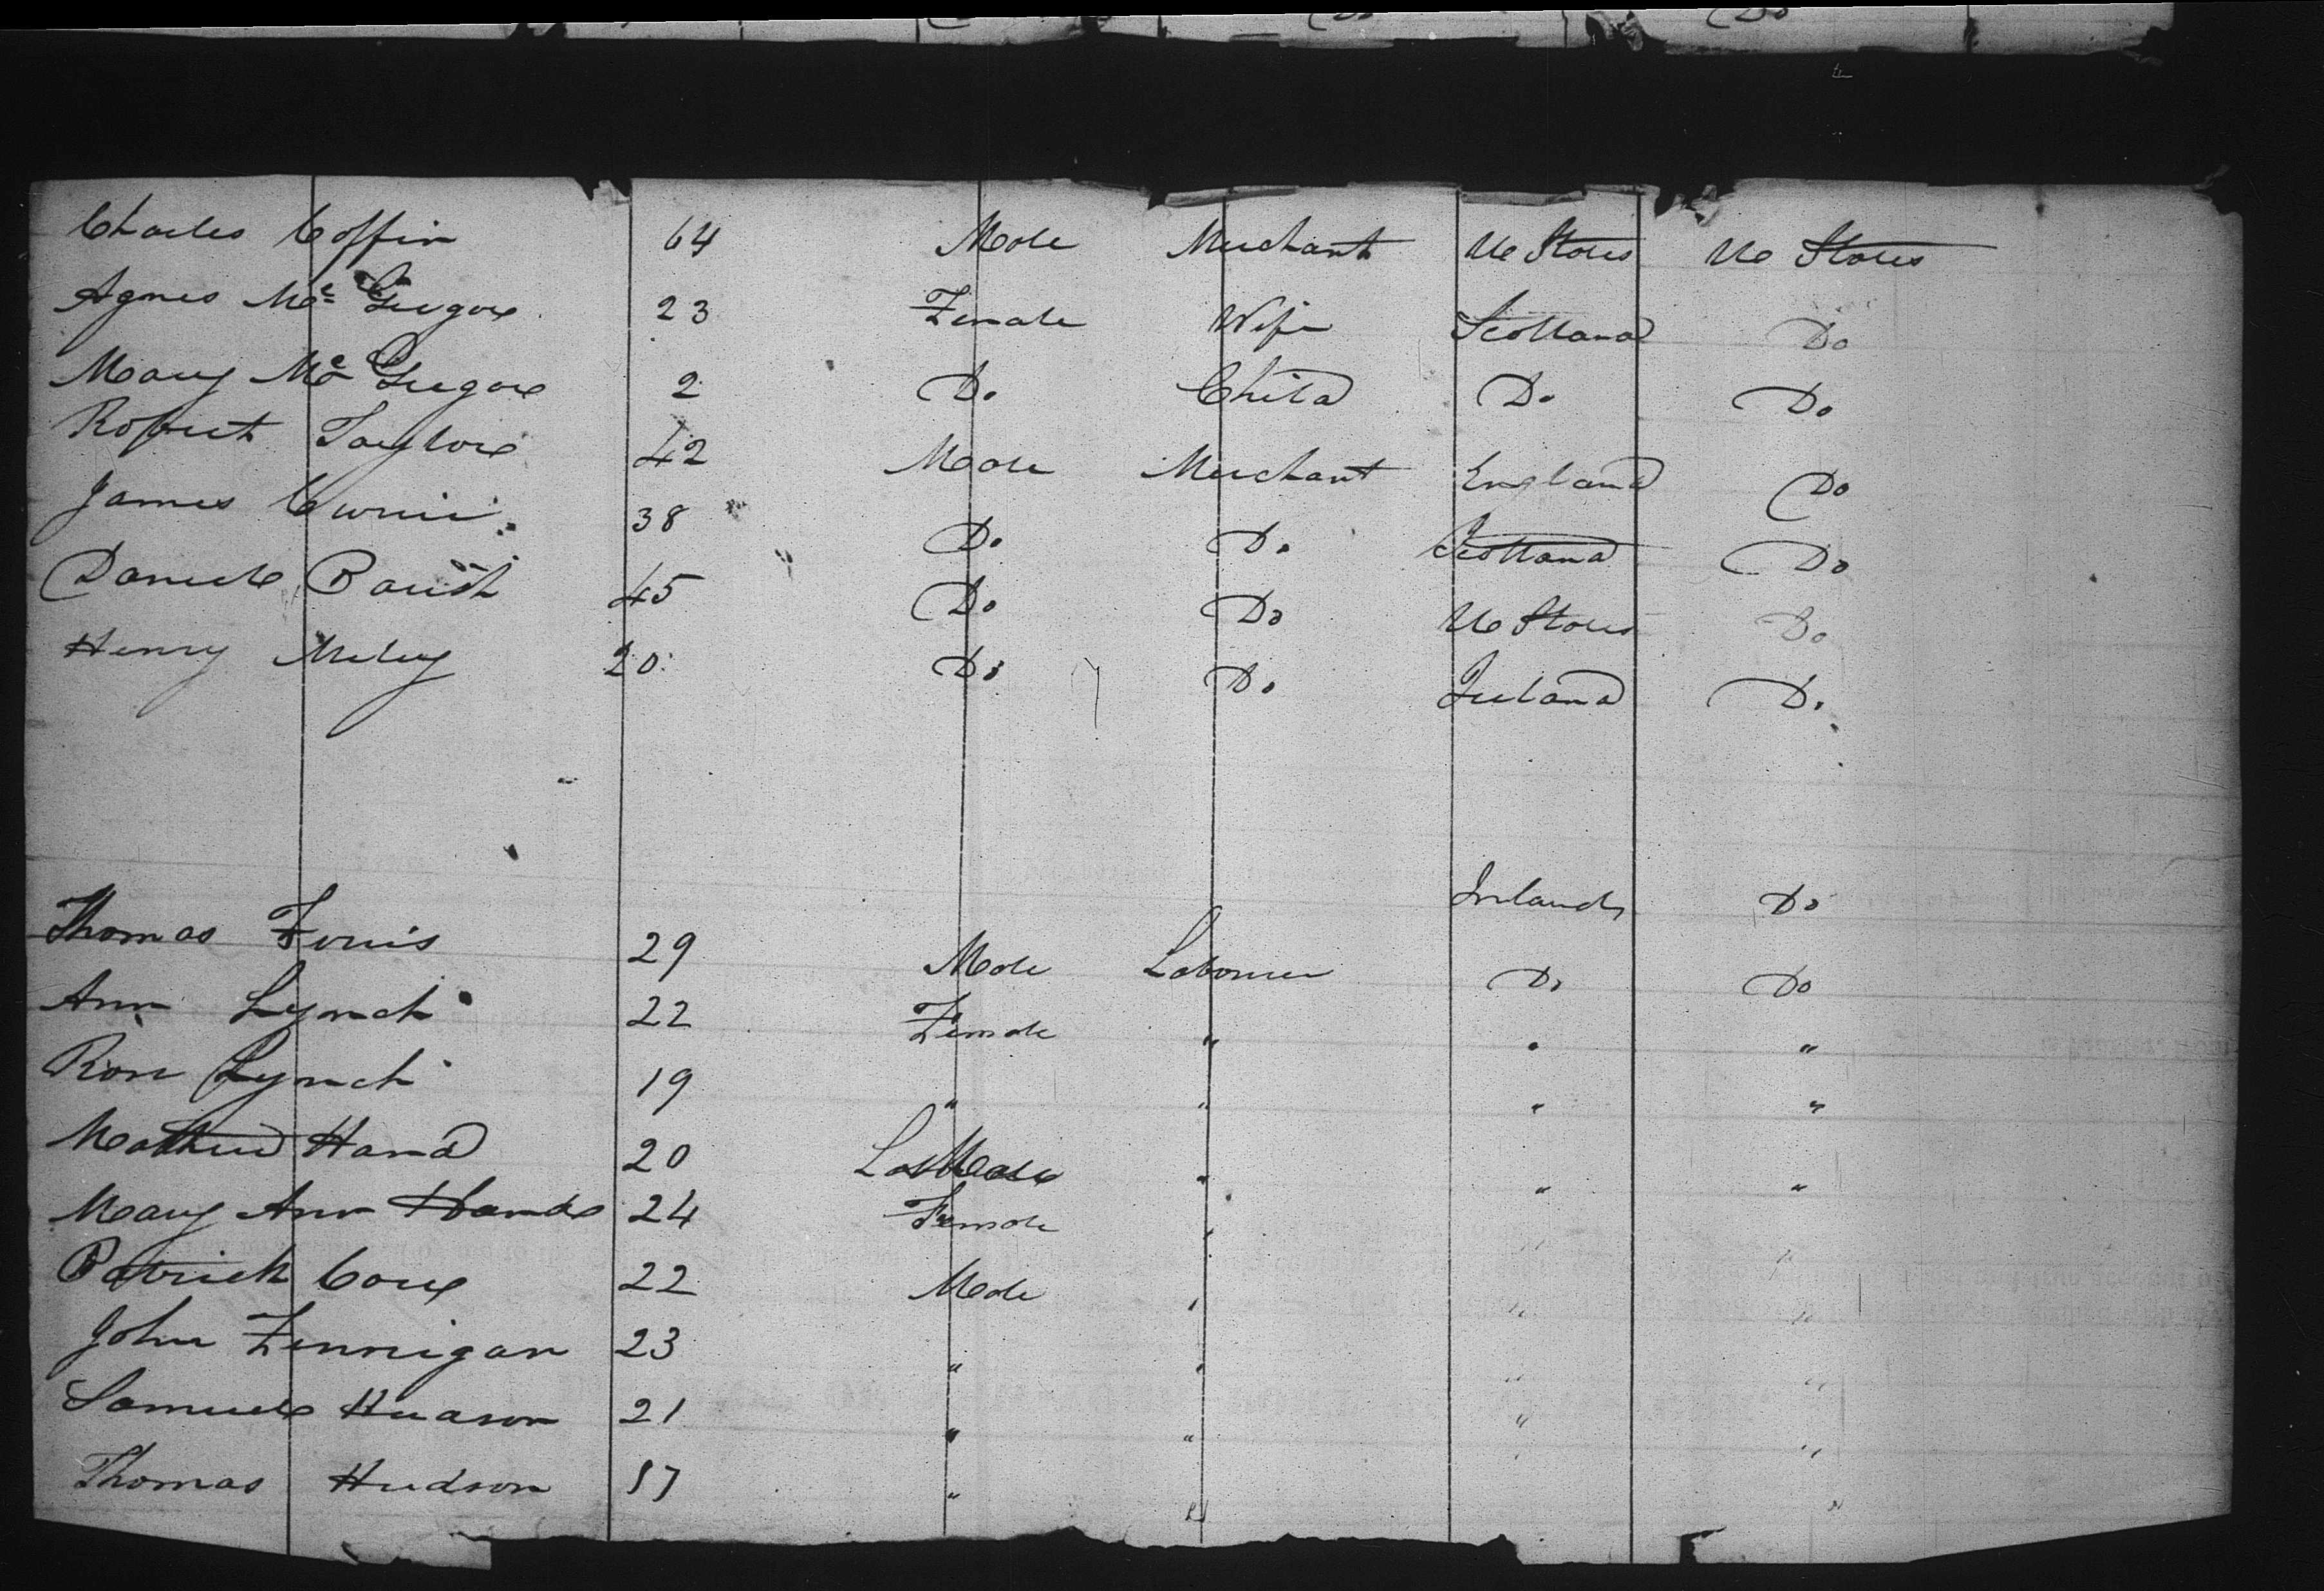 Do Do
Charles Coffin 64 Male Merchant U States U States
Agnes Mc Gregor 23 Female Wife Scotland Do
Mary Mc Gregor 2 Do Child Do Do
Robert Taylor 42 Male Merchant England Do
James Currie 38 Do Do Scotland Do
Daniel Parish 45 Do Do U States Do
Henry 20 Do Do Ireland Do
Irelands Do
Thomas 29 Male Labourer Do Do
Ann Lynch 22 Female " " "
Rose Lynch 19 " " " "
Mathew Hand 20 Male " " "
Mary Ann Hand 24 Female " " "
Patrick 22 Male " " "
John Fennigan 23 " " " "
Samuel Hudson 21 " " " "
Thomas Hudson 17 " " " "